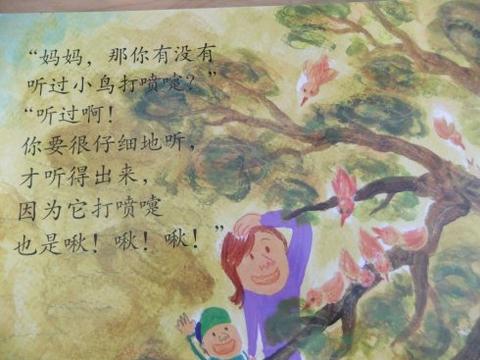 “妈妈，那你有没有
听过小鸟打喷嚏？”
“听过啊！
你要很仔细地听，
才听得出来，
因为它打喷嚏
也是啾！啾！啾！”